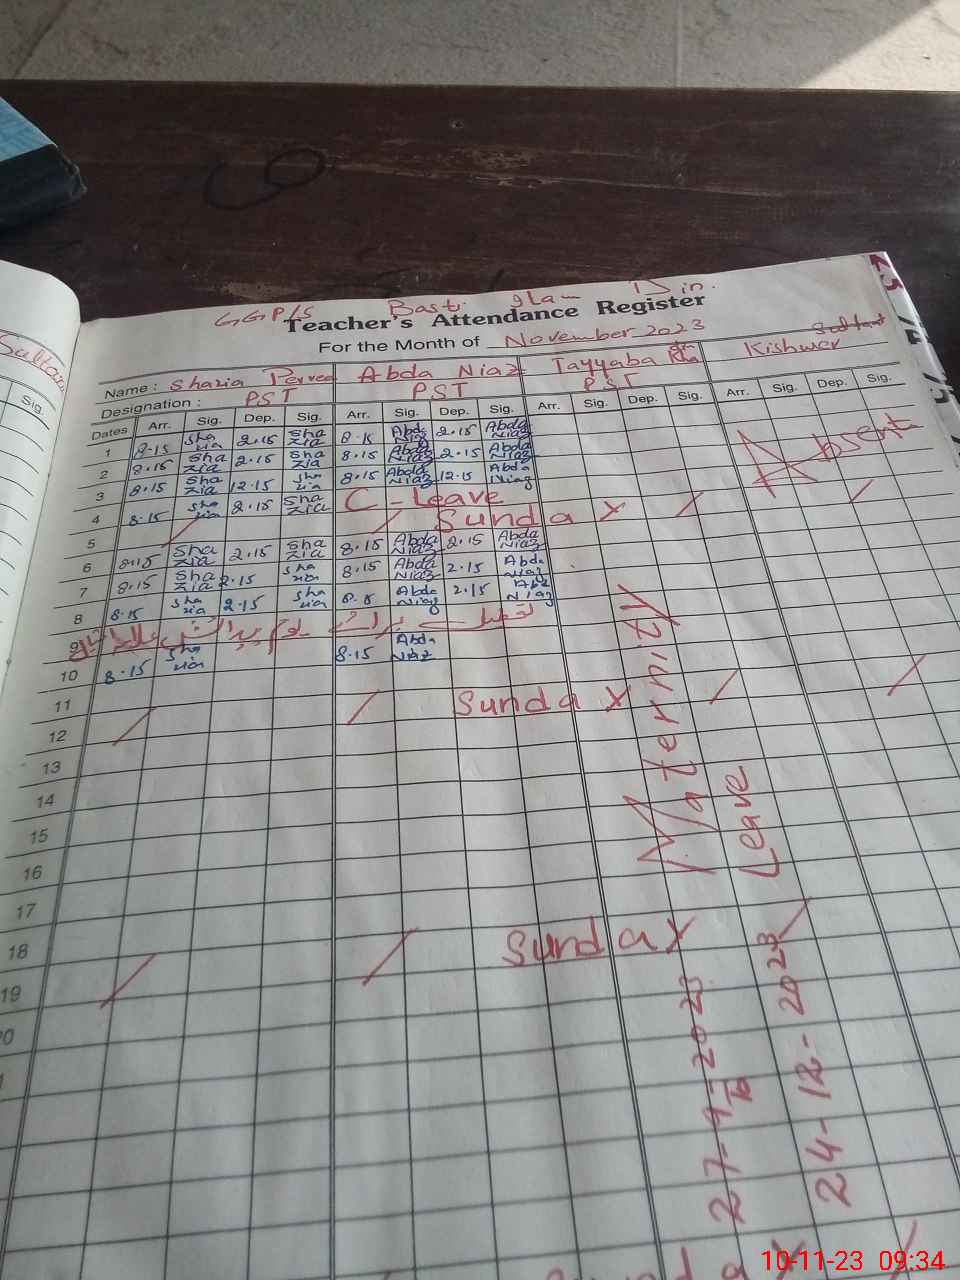 Sultan
Sig.
G.G.P/S Basti glam Din.
Teacher's Attendance Register
For the Month of November 2023
Name : Shazia Perveen Abda Niaz Tayyaba Kishwer Sultan
Designation : PST PST PST
Dates Arr. Sig. Dep. Sig. Arr. Sig. Dep. Sig. Arr. Sig. Dep. Sig. Arr. Sig. Dep. Sig.
1 8.15 Sha zia 2.15 Sha zia 8.15 Abda Niaz 2.15 Abda Niaz Absent
2 8.15 Sha zia 2.15 Sha zia 8.15 Abda Niaz 2.15 Abda Niaz
3 8.15 Sha zia 12.15 Sha zia 8.15 Abda Niaz 12.15 Abda Niaz
4 8.15 Sha zia 2.15 Sha zia C - Leave
5 Sunday
6 8.15 Sha zia 2.15 Sha zia 8.15 Abda Niaz 2.15 Abda Niaz
7 8.15 Sha zia 2.15 Sha zia 8.15 Abda Niaz 2.15 Abda Niaz
8 8.15 Sha zia 2.15 Sha zia 8.15 Abda Niaz 2.15 Abda Niaz
9 یوم پیدائش علامہ اقبال
10 8.15 Sha zia 8.15 Abda Niaz
11
12 Sunday
13
14
15
16
17
18
19 Sunday
Maternity
Leave
27-9-2023
to
24-12-2023
10-11-23 09:34